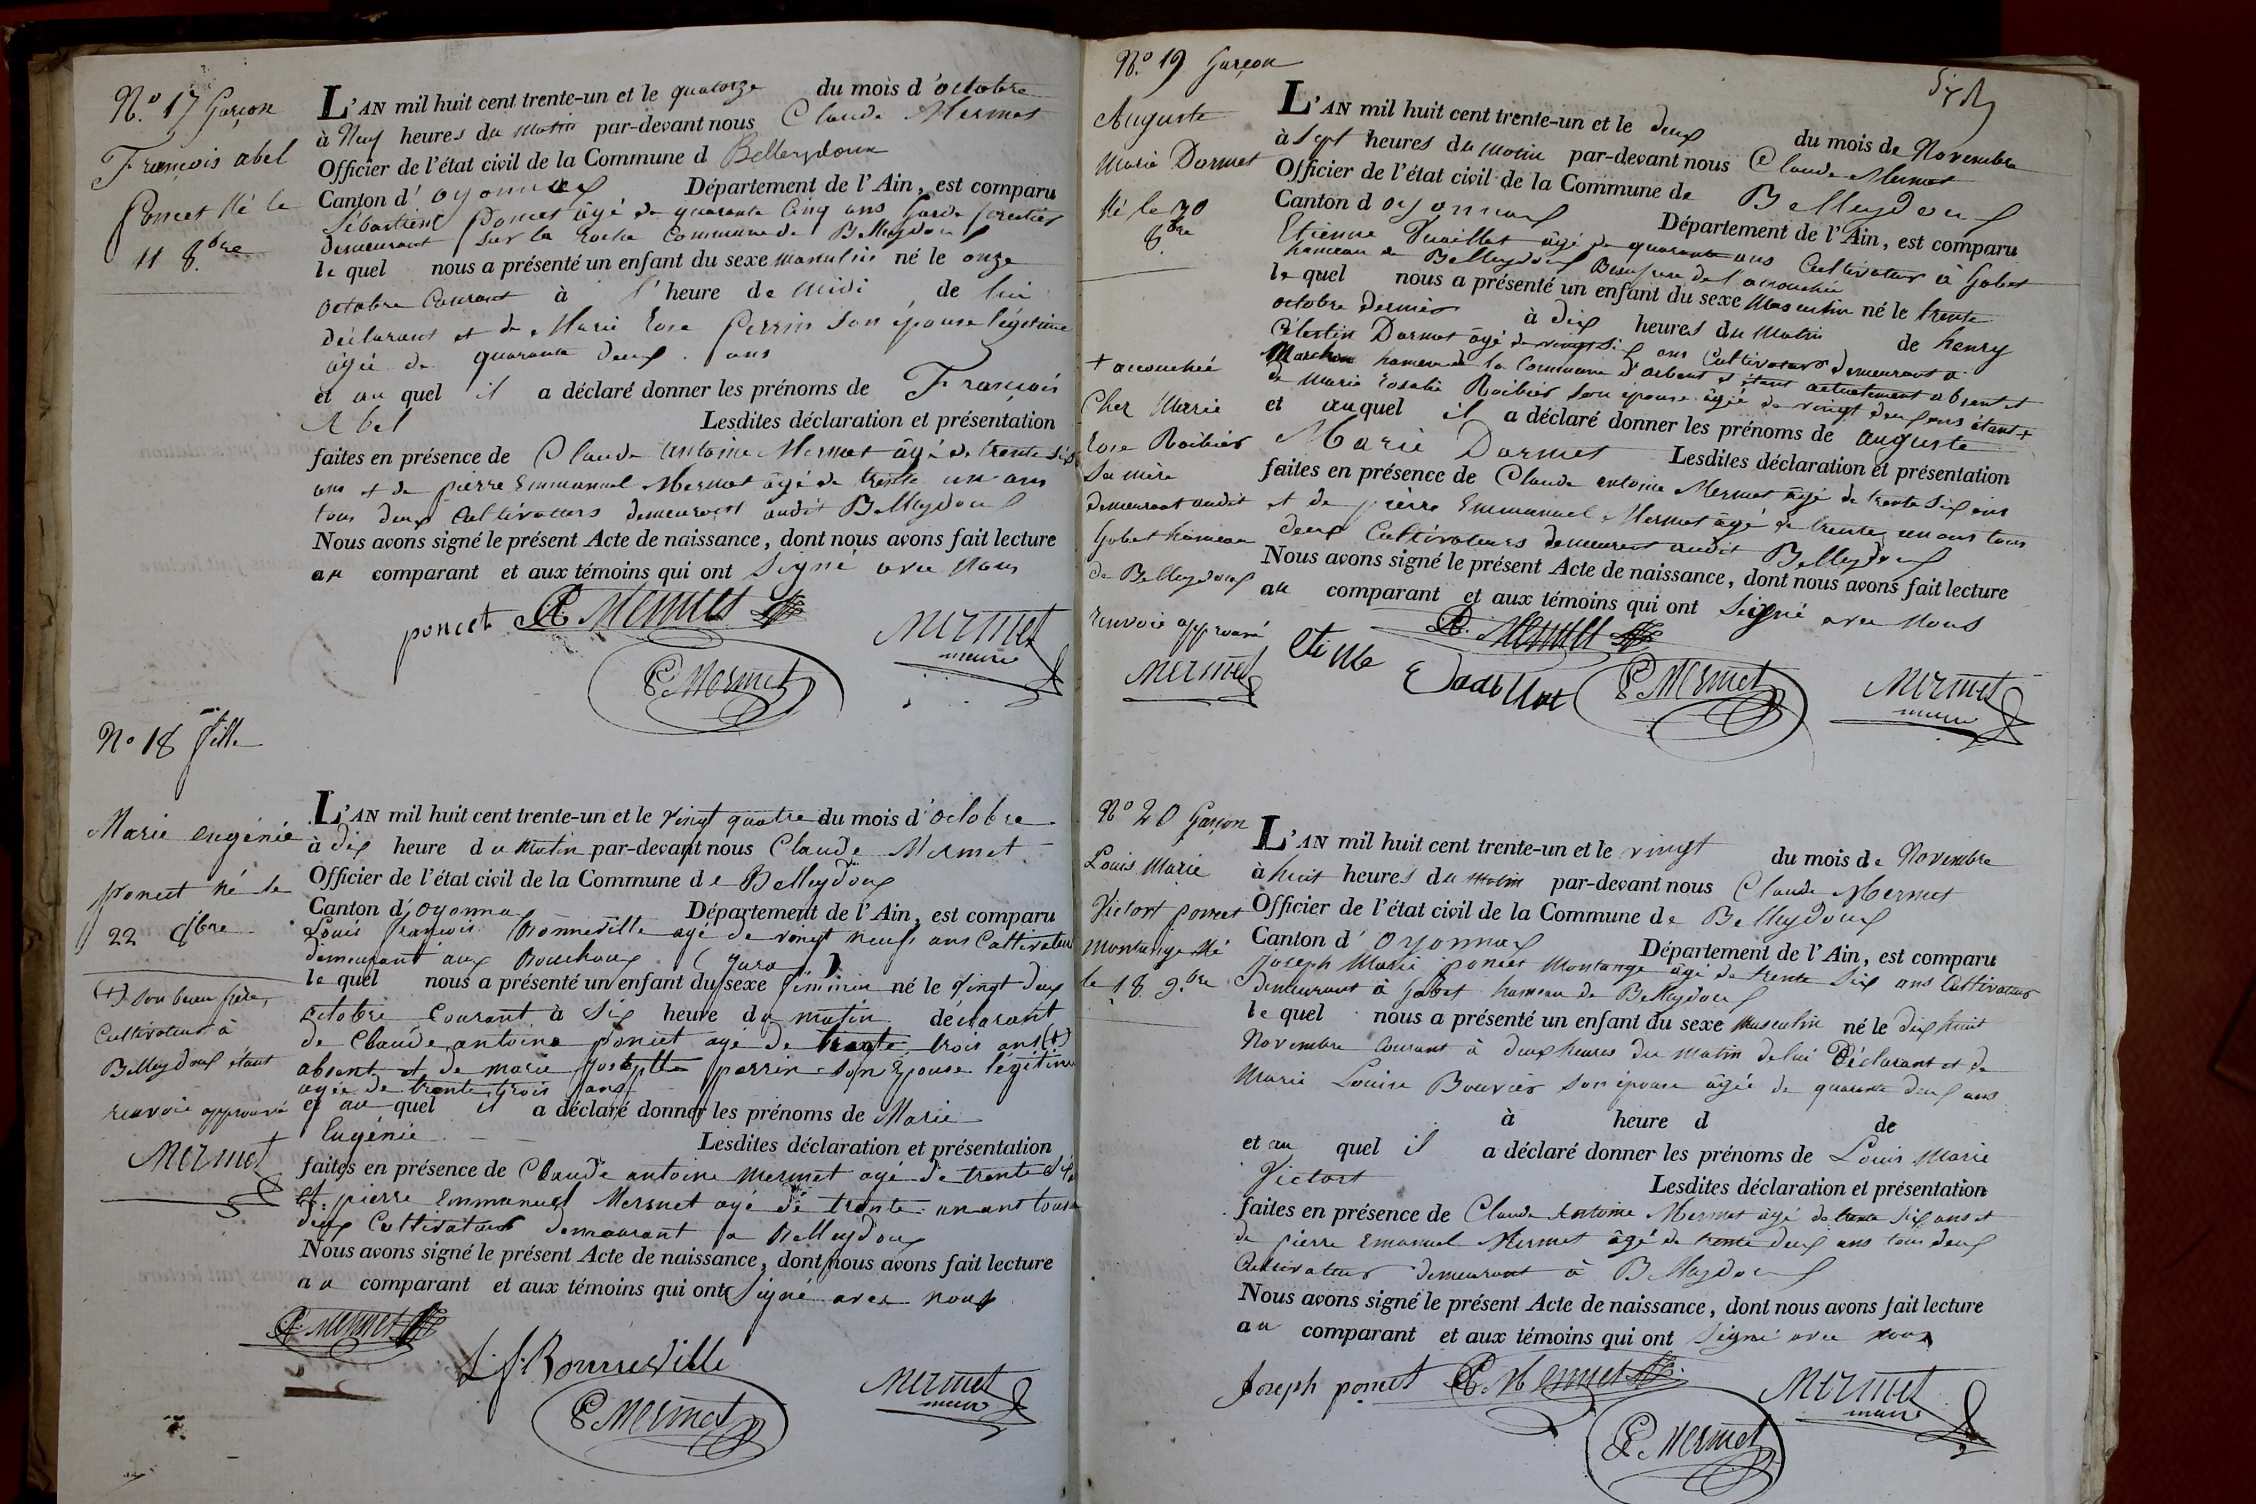 N.o 17 Garçon
François abel
Poncet Né le
11 8.bre
L'AN mil huit cent trente-un et le quatorze du mois d'octobre
à Neuf heures du matin par-devant nous Claude Mermet
Officier de l'état civil de la Commune d Belleydoux
Canton d'oyonnax Département de l'Ain, est comparu
Sébastien Poncet âgé de quarante Cinq ans Garde forestier
demeurant sur la Roche Commune de Belleydoux
le quel nous a présenté un enfant du sexe masculin né le onze
octobre Courant à l'heure de midi de lui
déclarant et de Marie Rose Perrin Son épouse légitime
âgée de quarante deux ans
et au quel il a déclaré donner les prénoms de François
Abel Lesdites déclaration et présentation
faites en présence de Claude antoine Mermet âgé de trente six
ans et de pierre Emmanuel Mermet âgé de trente un ans
tous deux Cultivateurs demeurant audit Belleydoux
Nous avons signé le présent Acte de naissance, dont nous avons fait lecture
au comparant et aux témoins qui ont Signé avec Nous
poncet A. Mermet
P Mermet
Mermet
maire
No 18 fille
Marie eugénie
poncet né le
22 8bre
(+) son beau frère,
Cultivateur à
Belleydoux étant
renvoie approuvé
Mermet
L'AN mil huit cent trente-un et le vingt quatre du mois d'octobre
à dix heure du matin par-devant nous Claude Mermet
Officier de l'état civil de la Commune de Belleydoux
Canton d'oyonnax Département de l'Ain, est comparu
Louis françois Bonneville agé de vingt neuf ans Cultivateur
demeurant aux Bouchoux (Jura)
le quel nous a présenté un enfant du sexe féminin né le vingt deux
octobre Courant à six heure du matin déclarant
de Claude antoine poncet agé de trente trois ans (+)
absent et de marie josephte perrin son épouse légitime
agée de trente trois ans
et au quel il a déclaré donner les prénoms de Marie
Eugénie Lesdites déclaration et présentation
faites en présence de Claude antoine mermet agé de trente six
et pierre Emmanuel Mermet agé de trente un ans tous
deux Cultivateurs demeurant a Belleydoux
Nous avons signé le présent Acte de naissance, dont nous avons fait lecture
au comparant et aux témoins qui ont Signé avec nous
A. Mermet
L. f. Bonneville
P Mermet
Mermet
maire
N.o 19 Garçon
Auguste
Marie Darmet
Né le 30
8.bre
+ accouchée
Chez Marie
Rose Roibier
Sa mère
demeurant audit
Gobet hameau
de Belleydoux
renvoie approuvé
Mermet
L'AN mil huit cent trente-un et le deux du mois de Novembre
à Sept heures du Matin par-devant nous Claude Mermet
Officier de l'état civil de la Commune de Belleydoux
Canton d oyonnax Département de l'Ain, est comparu
Etienne Duaillet âgé de quarante ans Cultivateur à Gobet
hameau de Belleydoux Beaufrere de l'accouchée
le quel nous a présenté un enfant du sexe Masculin né le trente
octobre dernier à dix heures du Matin de henry
Célestin Darmet âgé de vingt six ans Cultivateur demeurant a
hameau de la Commune d'arbent et étant actuellement absent et
de Marie Rosalie Roibier son épouse âgée de vingt deux ans étant +
et auquel il a déclaré donner les prénoms de auguste
Marie Darmet Lesdites déclaration et présentation
faites en présence de Claude antoine Mermet âgé de trente six ans
et de pierre Emmanuel Mermet âgé de trente un ans tous
deux Cultivateurs demeurant audit Belleydoux
Nous avons signé le présent Acte de naissance, dont nous avons fait lecture
au comparant et aux témoins qui ont Signé avec Nous
A. Mermet
P Mermet
Mermet
maire
No 20 Garçon
Louis Marie
Victort poncet
Montange Né
le 18. 9.bre
L'AN mil huit cent trente-un et le vingt du mois de Novembre
à huit heures du Matin par-devant nous Claude Mermet
Officier de l'état civil de la Commune de Belleydoux
Canton d'oyonnax Département de l'Ain, est comparu
Joseph Marie poncet Montange âgé de trente six ans Cultivateur
demeurant à Gobet hameau de Belleydoux
le quel nous a présenté un enfant du sexe Masculin né le dix huit
Novembre Courant à deux heures du Matin de lui Déclarant et de
Marie Louise Bouvier son épouse âgée de quarante deux ans
à heure d de
et au quel il a déclaré donner les prénoms de Louis Marie
Victort Lesdites déclaration et présentation
faites en présence de Claude Antoine Mermet âgé de trente six ans et
de pierre Emanuel Mermet âgé de trente deux ans tous deux
Cultivateurs demeurant à Belleydoux
Nous avons signé le présent Acte de naissance, dont nous avons fait lecture
au comparant et aux témoins qui ont Signé avec nous
Joseph poncet A. Mermet
Mermet
maire
P Mermet